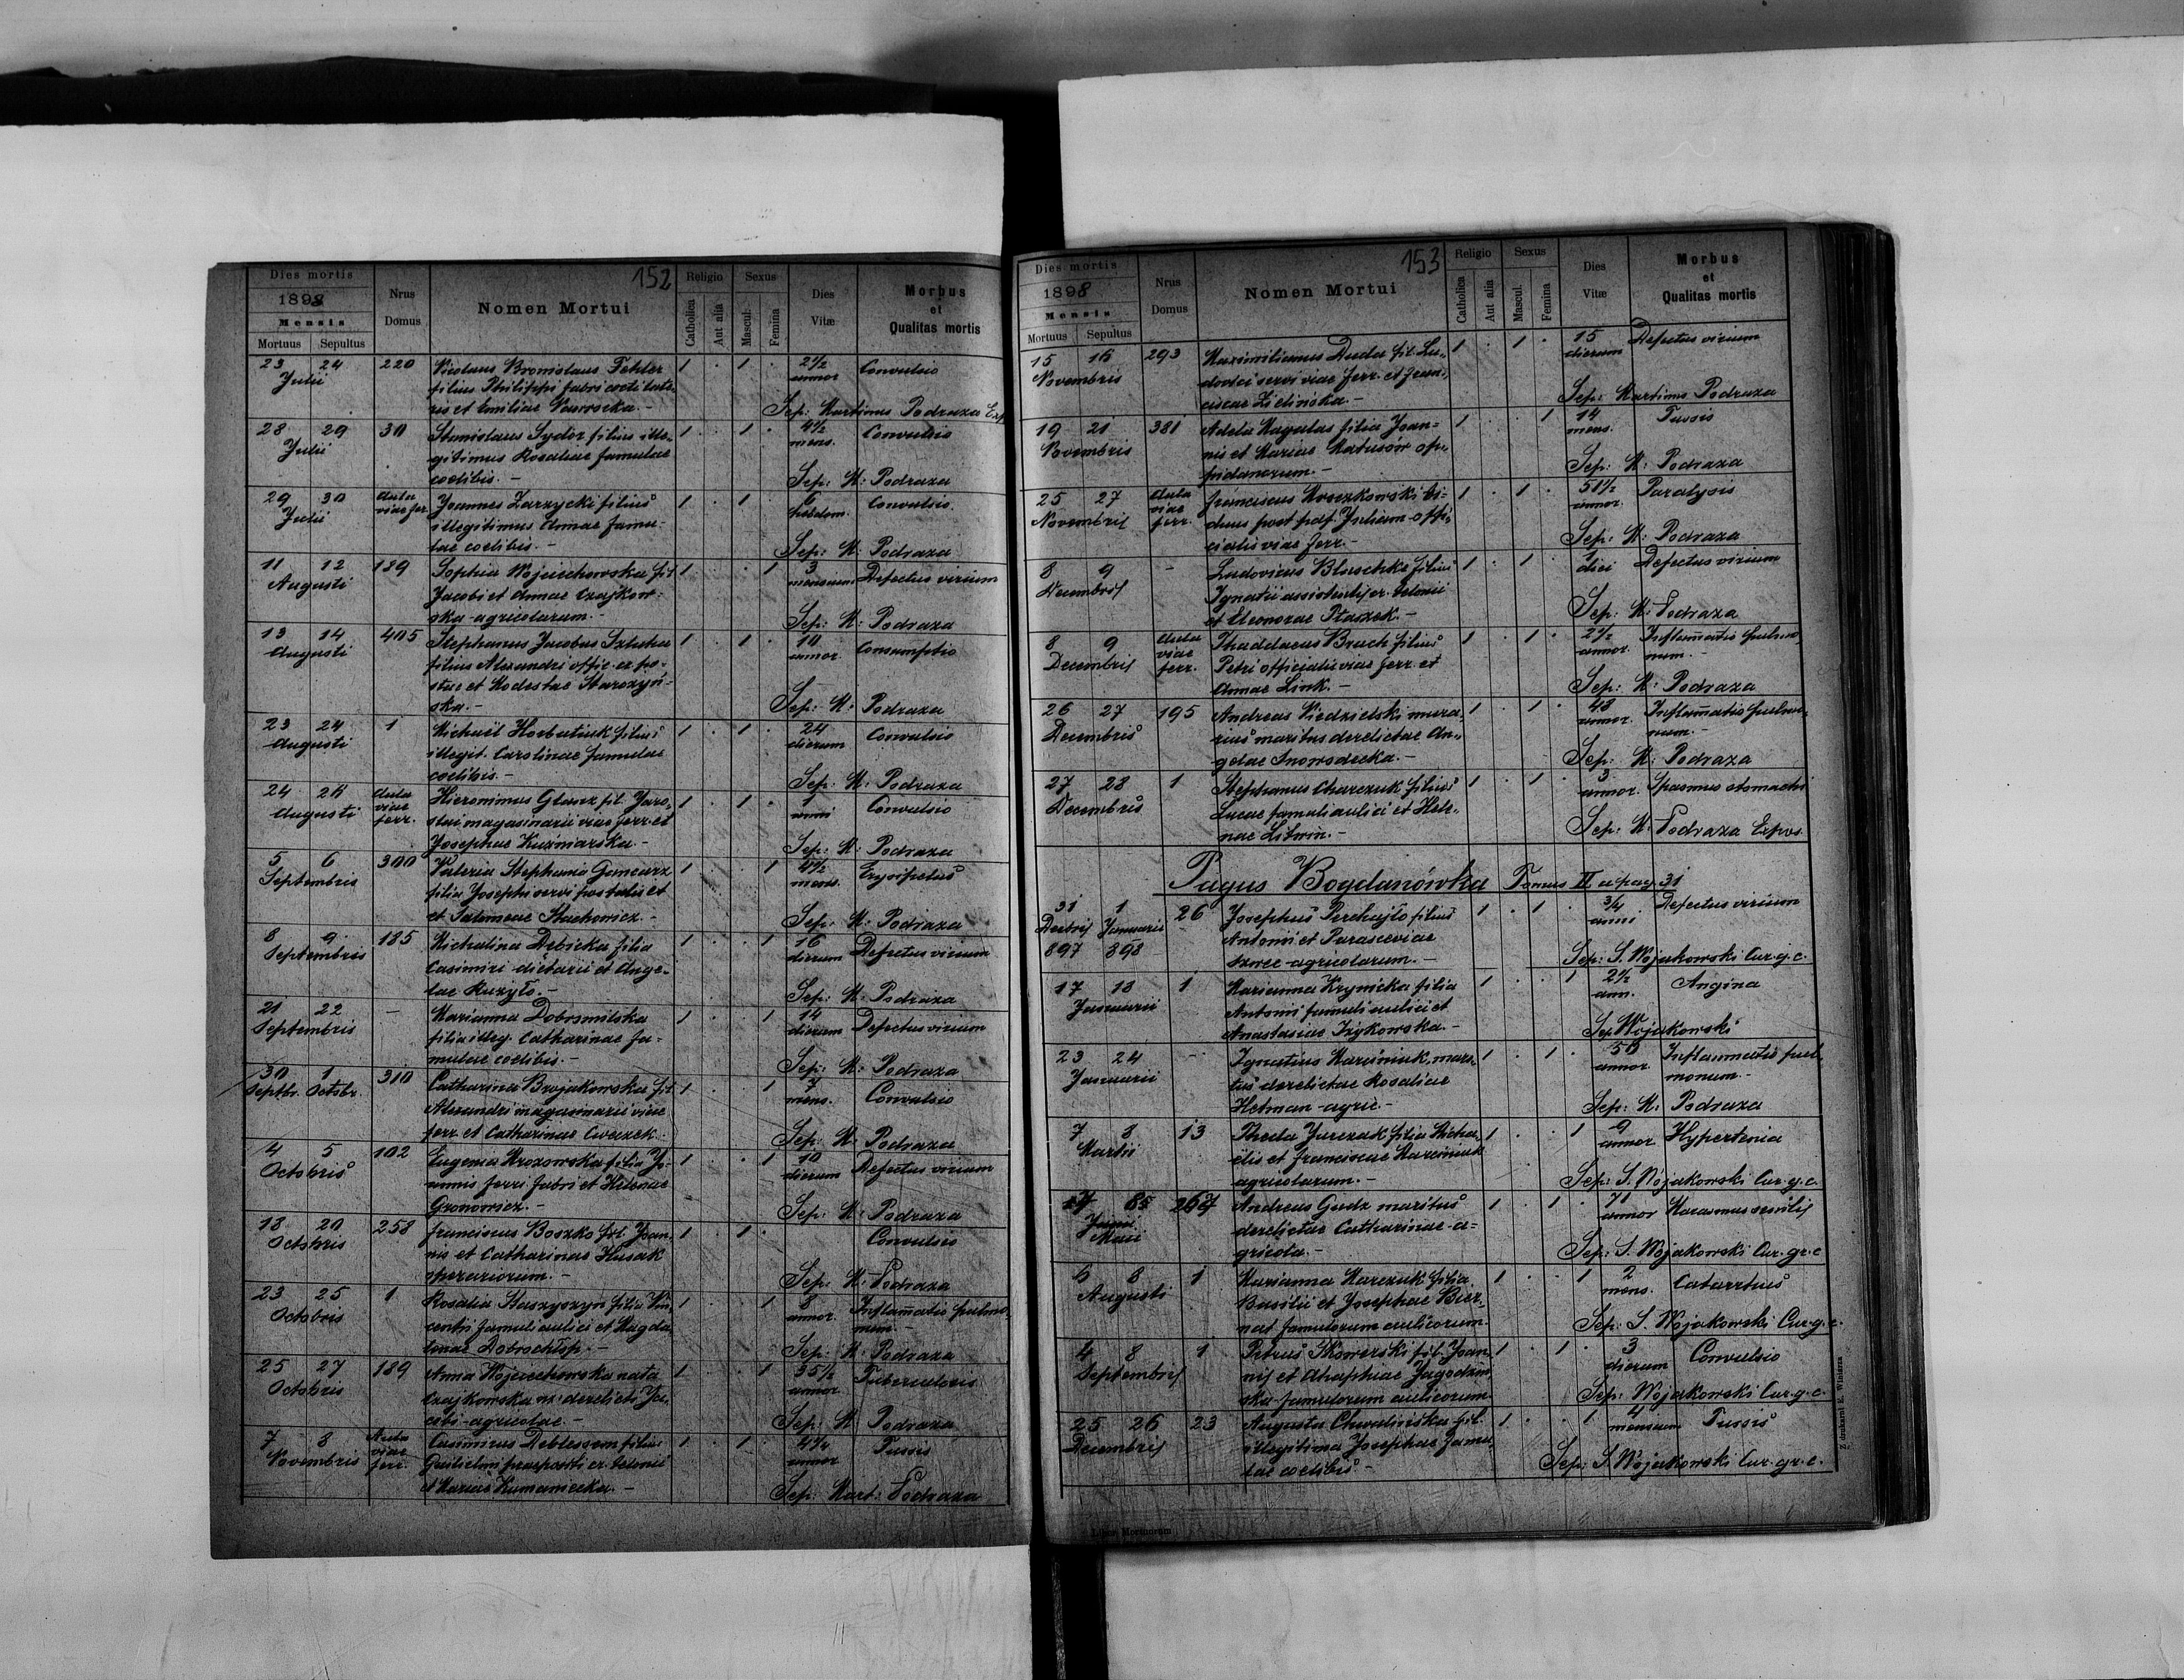 152
Dies mortis
1898
Mensis
Mortuus Sepultus
Nrus Domus
Nomen Mortui
Religio
Catholica
Aut alia
Sexus
Mascul.
Femina
Dies Vitæ
Morbus
et
Qualitas mortis
23 24 220 Bronislaus Fehler 1 . 1 . 2½ Convulsio
Julii filius Philippi annor
ris et Emiliae
Sep: Martinus Podraza Exp
28 29 Stanislaus Sydor filius ille- 1 . 1 . 4½ Convulsio
Julii gitimus Rosaliae famulae mens.
coelibis.-
Sep: M: Podraza
29 30 Aula Joannes Zarzycki filius 1 . 1 . 6 Convulsio.
Julii viae fer. illegitimus Annae famu- hebdom.
lae coelibis.-
Sep: M: Podraza
11 12 189 Sophia Wojciechowska fil 1 . . 1 3 Defectus virium
Augusti Jacobi et Annae Czajkow- mensium
ska-agricolarum.-
Sep: M: Podraza
13 14 405 Stephanus Jacobus 1 . 1 . 10 Consumptio
Augusti filius Alexandri offic. ex po- annor.
stae et Modestae
ska.-
Sep: M: Podraza
23 24 1 Michaël Horbatiuk filius 1 . 1 . 24 Convulsio
Augusti illegit. Carolinae famulae dierum
coelibis.-
Sep: M: Podraza
24 Aula Hieronimus Glanz fil. Jaro- 1 . 1 . 1 Convulsio
Augusti viae slai magasinarii viae ferr. et anni
ferr. Josephae Kuzniarska.-
Sep: M: Podraza
5 6 300 Valeria Stephania Goncarz 1 . . 1 4½ Erysipelas
Septembris filia Josephi servi postalis et mens.
et Stachowicz.-
Sep: M: Podraza
8 9 185 Michalina Dębicka filia 1 . . 1 16 Defectus virium
Septembris Casimiri dietarii et Ange- dierum
lae
Sep: M: Podraza
21 22 - Marianna Dobromilska 1 . . 1 14 Defectus virium
Septembris filia illeg. Catharinae fa- dierum
mulae coelibis.-
Sep: M: Podraza
30 1 310 Catharina fil. 1 . . 1 7 Convulsio
Septbr. Octobr. Alexandri magasinarii viae mens.
ferr. et Catharinae
Sep: M: Podraza
4 5 102 Eugenia Mrozowska filia Jo- 1 . . 1 10 Defectus virium
Octobris annis ferri fabri et Helenae dierum
Gronowicz.-
Sep: M: Podraza
18 20 258 Franciscus Boszko fil. Joan- 1 . 1 . Convulsio
Octobris nis et Catharinae Husak
operariorum.-
Sep: M: Podraza
23 25 1 Rosalia Staszyszyn filia Vin- 1 . . 1 8 Inflamatio pulmo-
Octobris centii famuli aulici et Magda- annor. num.
lenae
Sep: M: Podraza
25 27 189 Anna Wojciechowska nata 1 . . 1 35½ Tuberculosis
Octobris Czajkowska derelicti Ja- annor
cobi-agricolae.-
Sep: M: Podraza
7 8 Aula Casimirus Deblessem filius 1 . 1 . 4¼ Tussis
Novembris viae Guilielmi praepositi annor
ferr. et Mariae Kumaniecka.-
Sep: Mart: Podraza
153
Dies mortis
1898
Mensis
Mortuus Sepultus
Nrus Domus
Nomen Mortui
Religio
Catholica
Aut alia
Sexus
Mascul.
Femina
Dies Vitæ
Morbus
et
Qualitas mortis
15 16 293 Maximilianus Duda fil. Lu- 1 . 1 . 15 Defectus virium
Novembris dovici servi viae ferr. et Fran- dierum
ciscae Zielińska.-
Sep: Martinus Podraza
19 21 381 Adela Magalas filia Joan- 1 . . 1 14 Tussis
Novembris nis et Mariae Matusów op- mens.
pidanorum.-
Sep: M: Podraza
25 27 Aula Franciscus Mroczkowski vi- 1 . 1 . 51½ Paralysis
Novembris viae duus post Juliam offi- annor.
ferr. cialis viae ferr.-
Sep: M: Podraza
8 9 - Ludovicus Blaschke filius 1 . 1 . 1 Defectus virium
Decembris Ignatii assistentis diei
et Eleonorae Ptaszek.-
Sep: M: Podraza
8 9 Aula Thaddaeus Bruch filius 1 . 1 . 2½ Inflamatio pulmo-
Decembris viae Petri officialis viae ferr. et annor. num.-
ferr. Annae Link.-
Sep: M: Podraza
26 27 195 Andreas Niedzielski mura- 1 . 1 . 48 Inflamatio pulmo-
Decembris rius maritus derelictae An- annor. num.-
gelae
Sep: M: Podraza
27 28 1 Stephanus Charczuk filius 1 . 1 . 3 Spasmus stomachi
Decembris Lucae famuli aulici et Hele- annor.
nae Litwin.-
Sep: M: Podraza Expos
Pagus Bogdanówka Tomus II a pag. 31
31 1 26 Josephus Perchajło filius 1 . 1 . 3/4 Defectus virium
Decbris Januarii Antonii et Parasceviae anni
897 898 agricolarum.-
Sep: S. Wojakowski Cur. g. c.
17 18 1 Marianna Krynicka filia 1 . . 1 2½ Angina
Januarii Antonii famuli aulici et ann.
Anastasiae
Sep Wojakowski
23 24 - Ignatius Marciniuk, mari- 1 . 1 . 50 Inflammatio pul-
Januarii tus derelictae Rosaliae annor. monum.-
Hetman-agric.-
Sep: M: Podraza
7 8 13 Thecla Jurczak filia Micha- 1 . . 1 9 Hypertenia
Martii elis et Franciscae Marciniuk annor
agricolarum.-
Sep: S. Wojakowski Cur. g. c.
Andreas Gudz maritus 1 . 1 . 71 Marasmus senilis
Maii derelictae Catharinae-a- annor
gricola.-
Sep: S. Wojakowski Cur. gr. c
6 8 1 Marianna Marczuk filia 1 . . 1 2 Catarrhus
Augusti Basilii et Josephae Bier- mens.
nat famulorum aulicorum.
Sep: S. Wojakowski Cur. g. c.
4 8 1 Petrus Skowerski fil. Joan- 1 . 1 . 3 Convulsio
Septembris nis et Ahaphiae Jagodziń- dierum
ska-famulorum aulicorum.
Sep: Wojakowski Cur. g. c.
25 26 23 Augusta Chwalińska fil. 1 . . 1 4 Tussis
Decembris illegitima Josephae famu- mensium
lae coelibis.-
Sep: S Wojakowski Cur. gr. c.
Liber Mortuorum
Z drukarni E. Winiarza